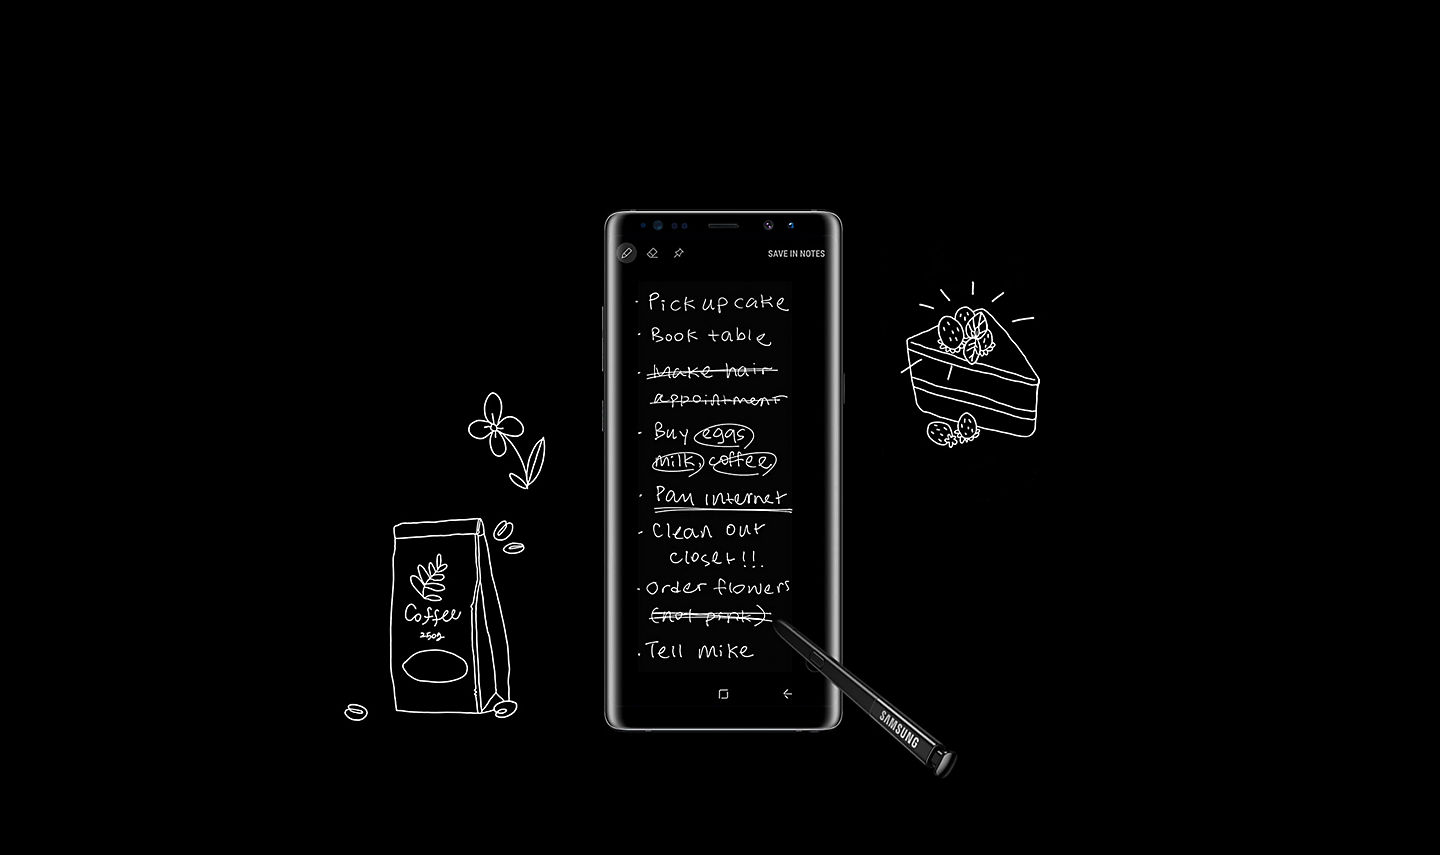 SAVE IN NOTES
· Pick up cake
· Book table
· Make hair
appointment
· Buy eggs
milk, coffee
· Pay internet
· Clean out
closet!!!
· Order flowers
(not pink)
· Tell mike
Coffee
250g
SAMSUNG